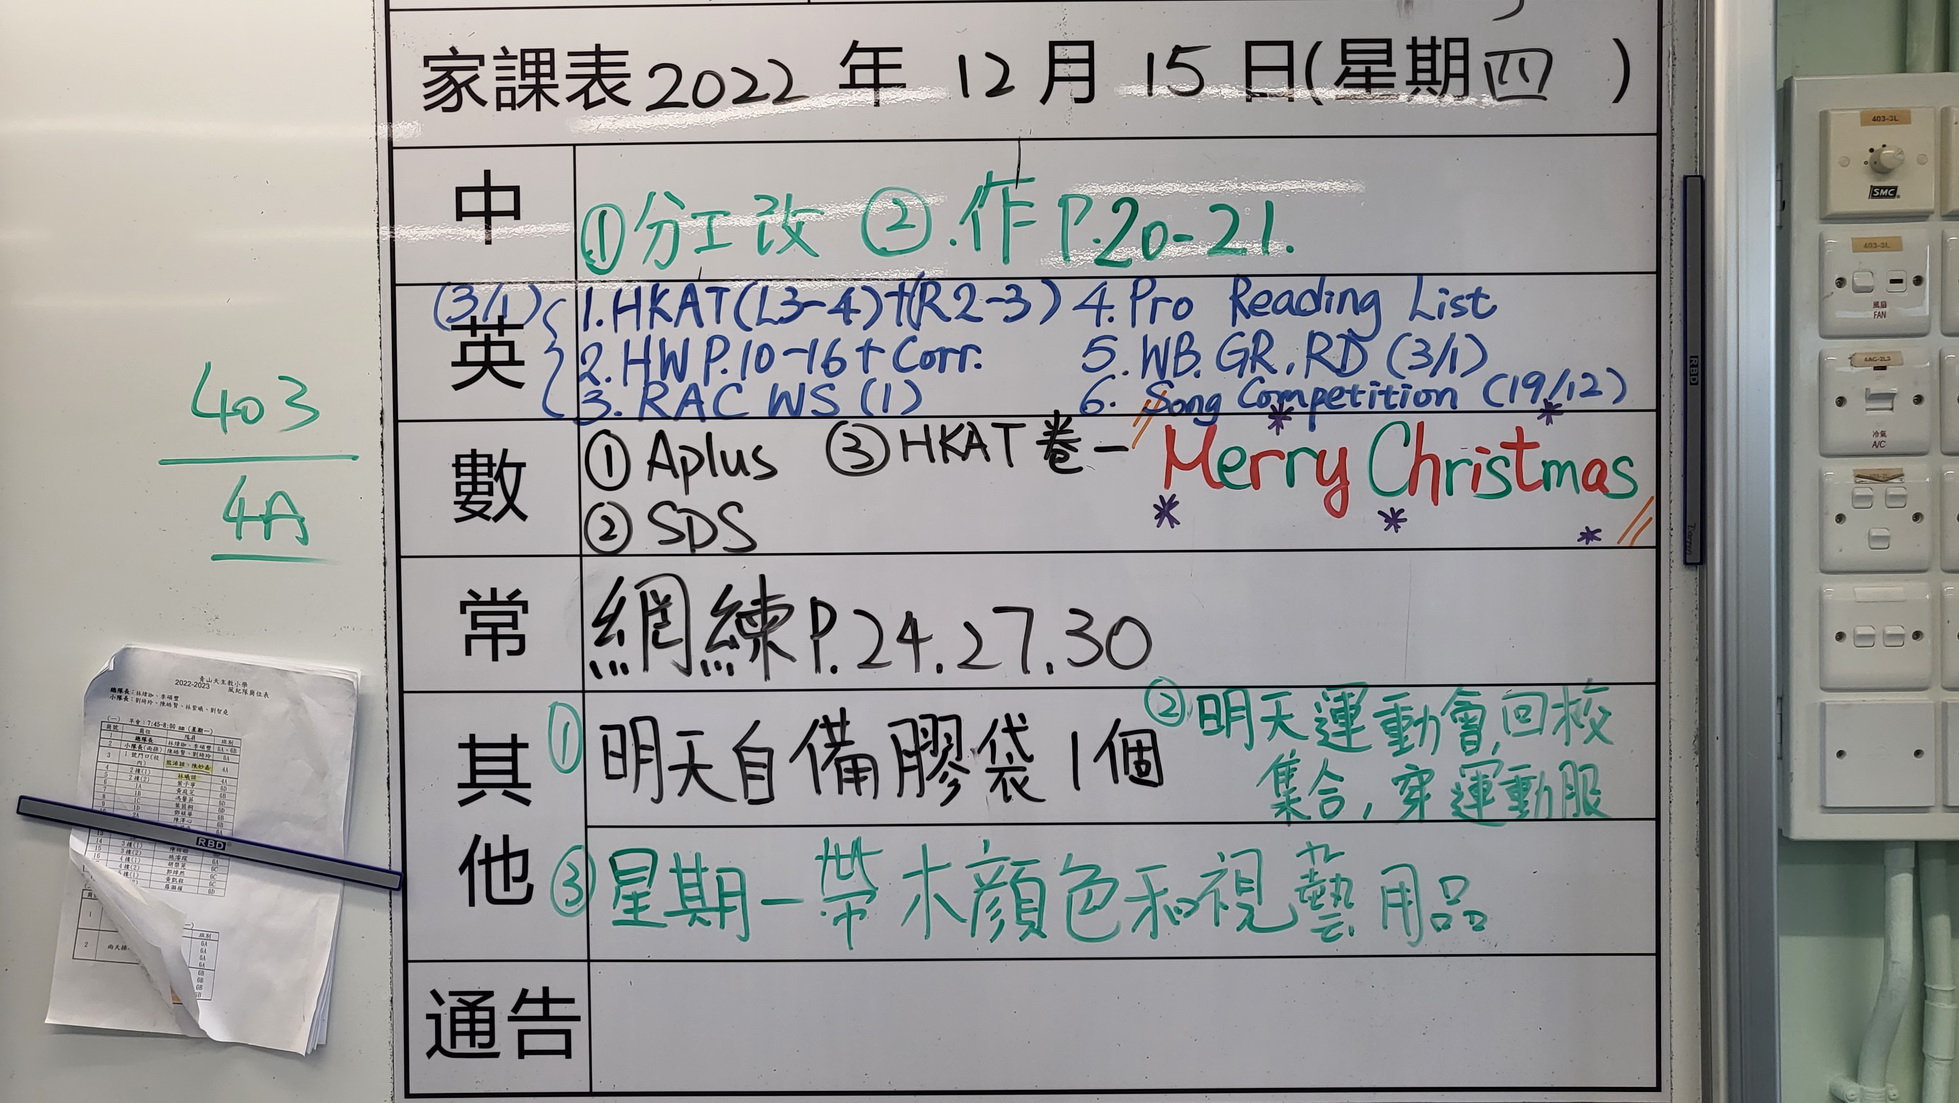 家課表 2022 年 12 月 15 日(星期四 )
中
①分工改 ②.作 P.20-21.
英
(3/1)
1. HKAT(L3-4)+(R2-3)
2. HW P.10-16 + Corr.
3. RAC WS (1)
4. Pro Reading List
5. WB. GR. RD (3/1)
6. Song Competition (19/12)
數
① Aplus ③ HKAT 卷一
② SDS
Merry Christmas
常
網練 P.24.27.30
其他
① 明天自備膠袋 1個
② 明天運動會,回校
集合,穿運動服
③ 星期一帶木顏色和視藝用品
通告
403
4A
2022-2023
RBD
RBD
403-3L
SMC
403-3L
風扇
FAN
冷氣
A/C